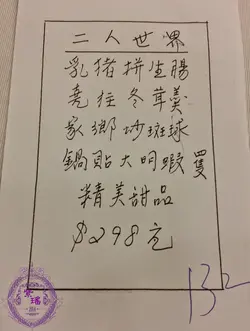 二人世界
乳猪拼生腸
尭往冬茸羹
家鄉炒斑球
鍋貼大明蝦 四隻
精美甜品
$298元
132